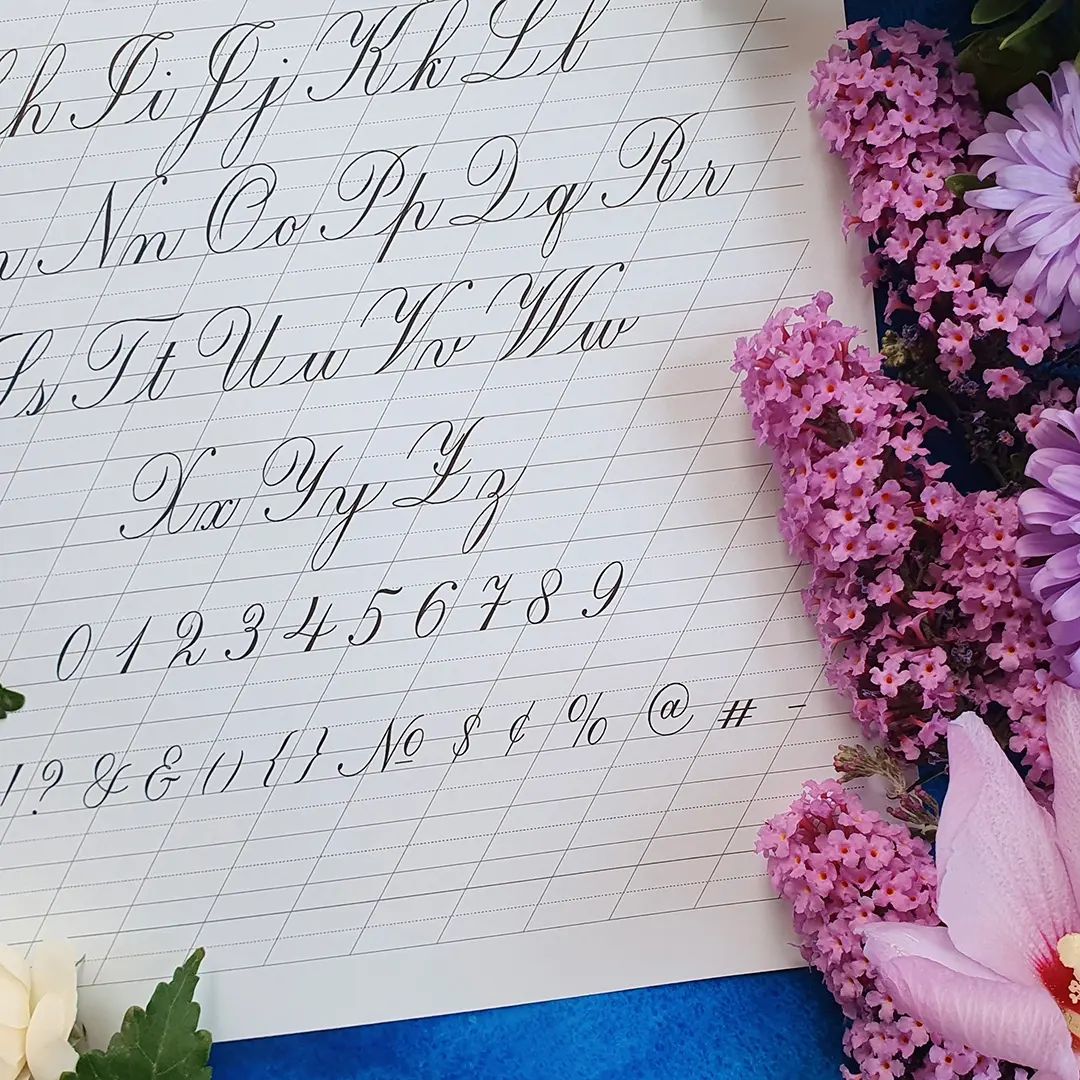 h Ii Jj Kk Ll
n Nn Oo Pp Qq Rr
Ss Tt Uu Vv Ww
Xx Yy Zz
0 1 2 3 4 5 6 7 8 9
! ? & & ( ) { } № $ ¢ % @ # -